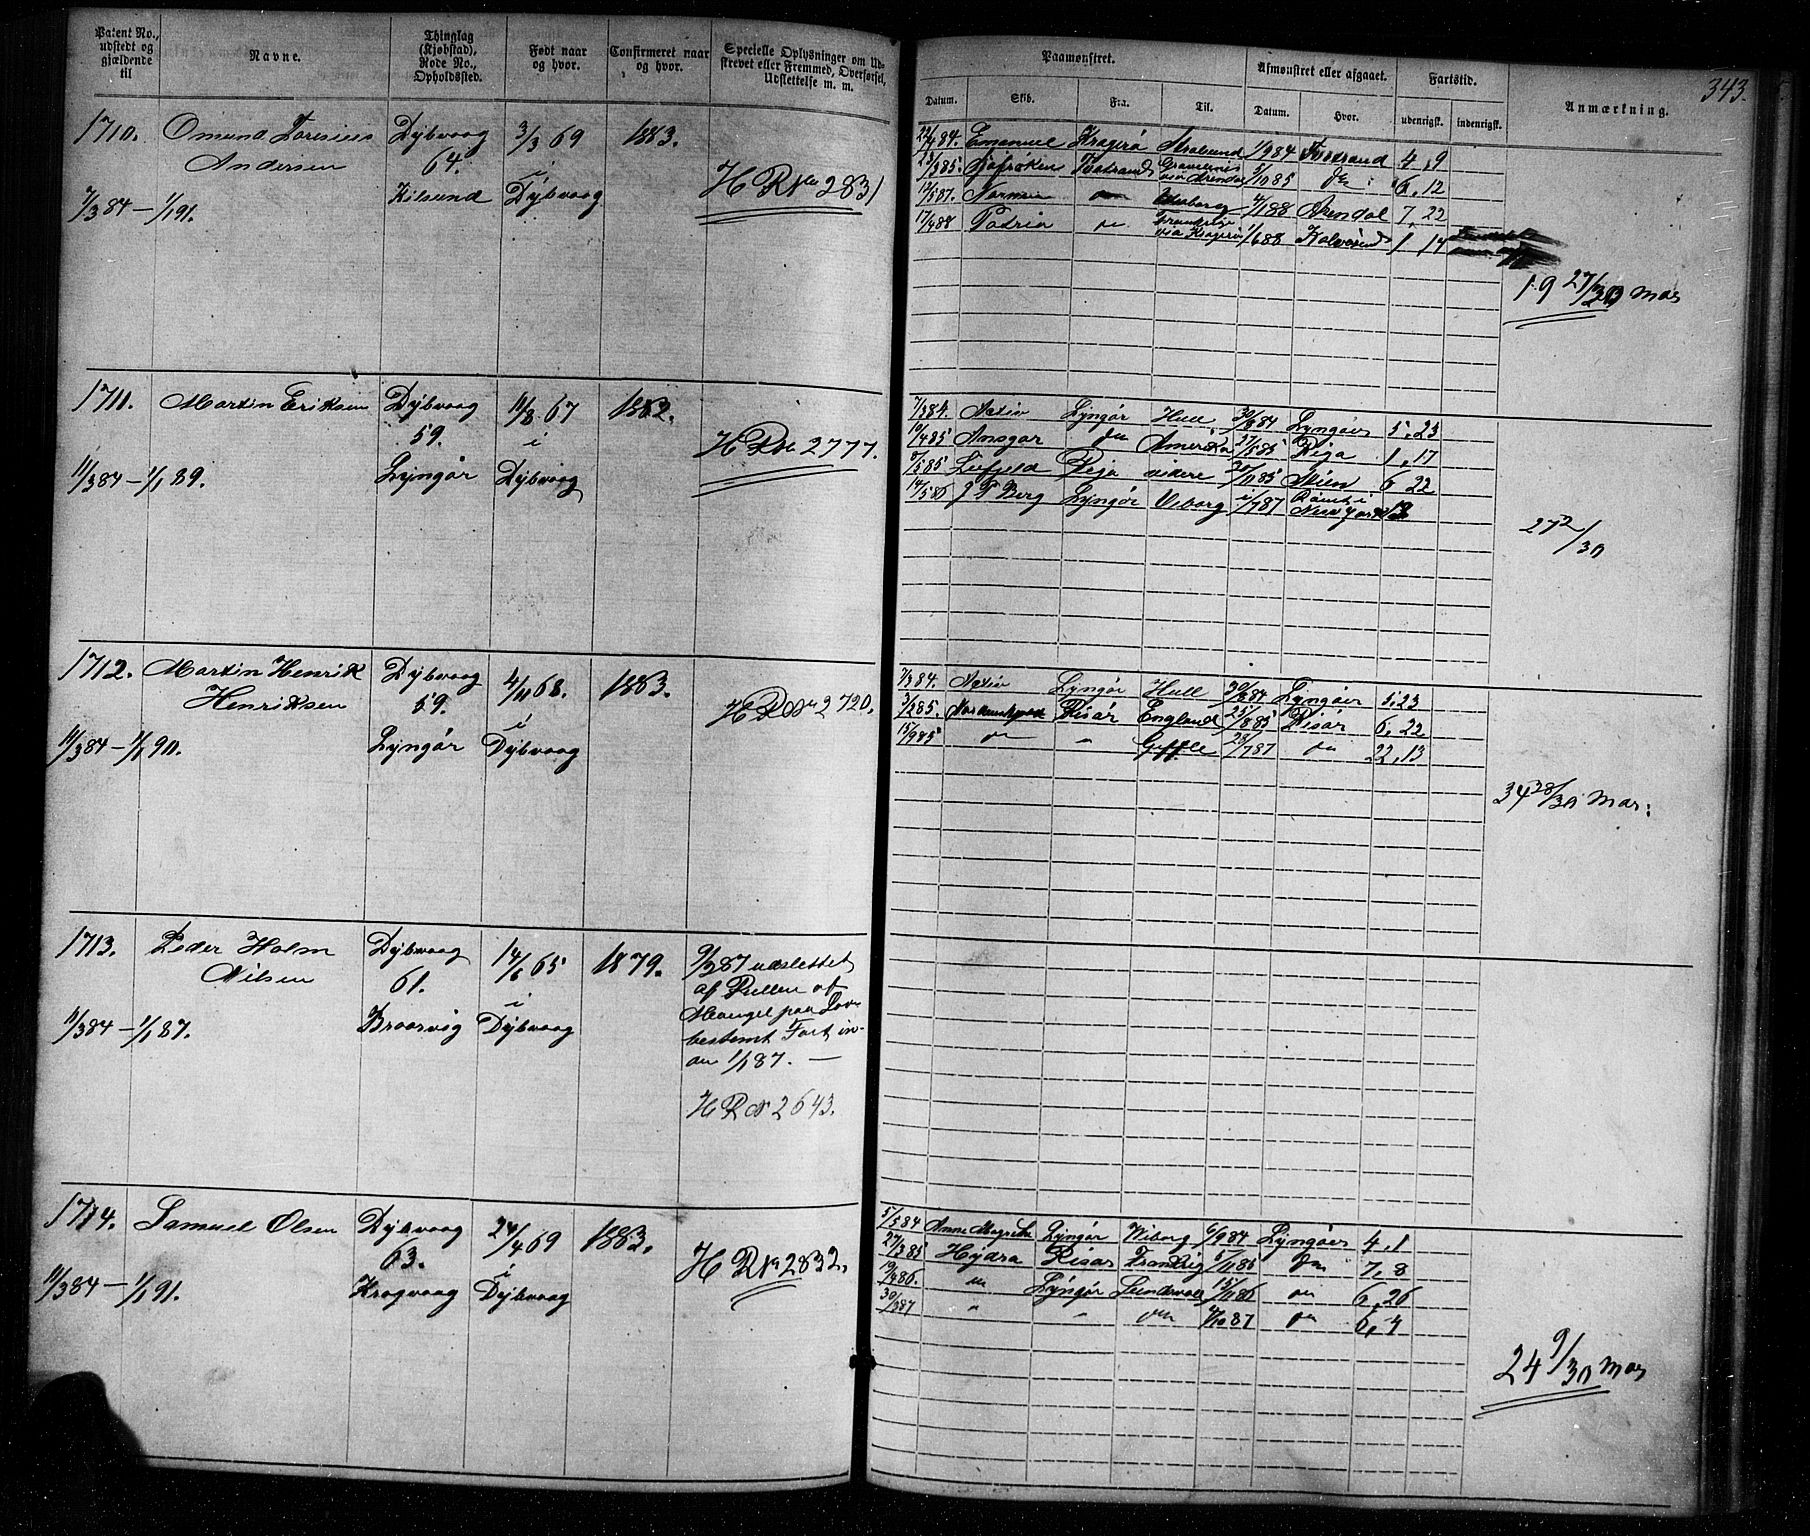 343.
Patent No., udstedt og gjældende til
Navne.
Thinglag (Kjøbstad), Rode No., Opholdssted.
Født naar og hvor.
Confirmeret naar og hvor.
Specielle Oplysninger om Udskrevet eller Fremmed, Overførsel, Udslettelse m. m.
Paamønstret.
Afmønstret eller afgaaet.
Fartstid.
Anmærkning.
Datum. Skib. Fra. Til. Datum. Hvor. udenrigsk. indenrigsk.
1710. Omund Andersen Dybvaag 3/3 69 1883.
64.
7/3 84 — 1/1 91. Kilsund i Dybvaag
H R No 2831
22/4 84. Emanuel Kragerø Stralsund 1/9 84 4,9
23/3 85. 3/10 85 do 6,12
12/5 87. do 4/1 88 Arendal 7,22
17/4 88 Patria do via Kragerø 1/6 88 1,14
19 27/30 Mdr
1711. Martin Eriksen Dybvaag 11/8 67 1882.
59. i
11/3 84 — 1/1 89. Lyngør Dybvaag
H R No 2777.
7/3 84. Activ Lyngør Hull 30/8 84 Lyngøer 5,23
10/4 85 Ansgar do Amerika 27/5 85 Riga 1,17
Riga videre Skien 6 22
14/5 86 J P Berg Lyngør Viborg 2/7 87 Rømt i New York
27 2/30
1712. Martin Henrik Henriksen Dybvaag 4/11 68. 1883.
59. i
11/3 84 — 1/1 90. Lyngør Dybvaag
H R No 2720.
7/3 84. Activ Lyngør Hull 30/8 84 Lyngøer 5,23
3/2 85. Risør England 25/8 85 Risør 6,22
15/9 85 do " Geffle 28/7 87 do 22,13
34 28/30 Mdr:
1713. Peder Holm Nilsen Dybvaag 14/6 65 1879.
61. i
11/3 84 — 1/1 87. Braarvig Dybvaag
9/3 87 udslettet
af Rullen af
Mangel paa Lov-
bestemt Fart in-
den 1/1 87. —
H R No 2643.
1714. Samuel Olsen Dybvaag 24/4 69 1883.
63. i
11/3 84 — 1/1 91. Krogvaag Dybvaag
H R No 2832.
5/5 84 Lyngør Wiborg 6/9 84 Lyngøer 4,1
27/3 85 Hydra Risør Frankrig 5/11 85 do 7,8
19/4 86. do Lyngør Sundsvall 15/11 86 do 6,26
30/3 87 " " do 4/10 87 do 6,4
24 9/30 Mdr